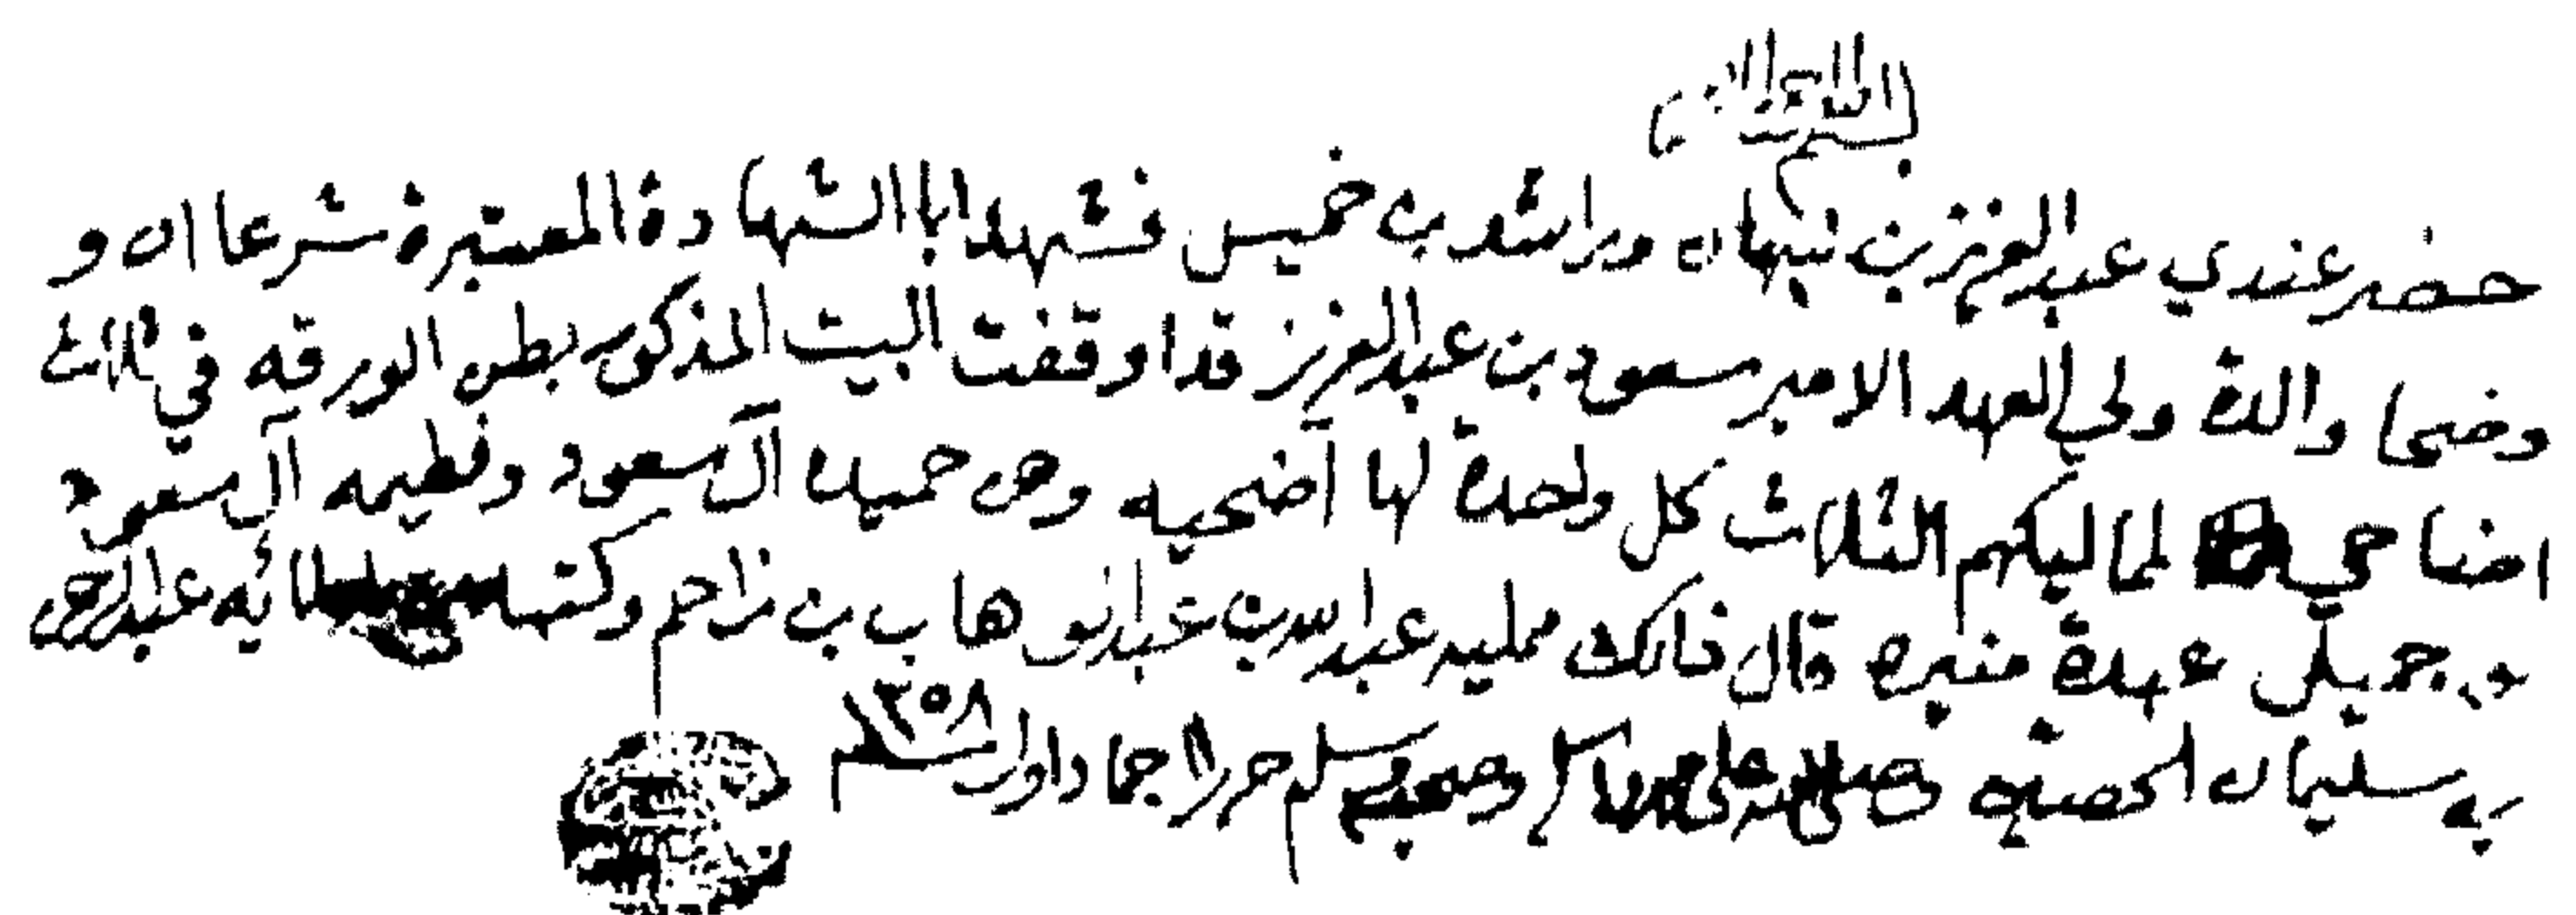 بسم الله الرحمن الرحيم
حضر عندي عبد العزيز بن نبهان وراشد بن خميس فشهدا با الشهادة المعتبرة شرعا ان و
وضحا والدة ولي العهد الامير سعود بن عبد العزيز قد اوقفت البيت المذكور بطن الورقه في ثلاث
اضاحي لمماليكهم الثلاث كل واحدة لها اضحيه وهن حميده آل سعود وفطيمه آل سعود
جميل عهدة منيره قال ذلك ممليه عبد الله بن عبد الوهاب بن زاحم وكتبه عن املائه عبد الرحمن
بن سليمان الحصين وصلى الله على محمد وآله وصحبه وسلم حرر جماد اول سنة ١٣٥٨